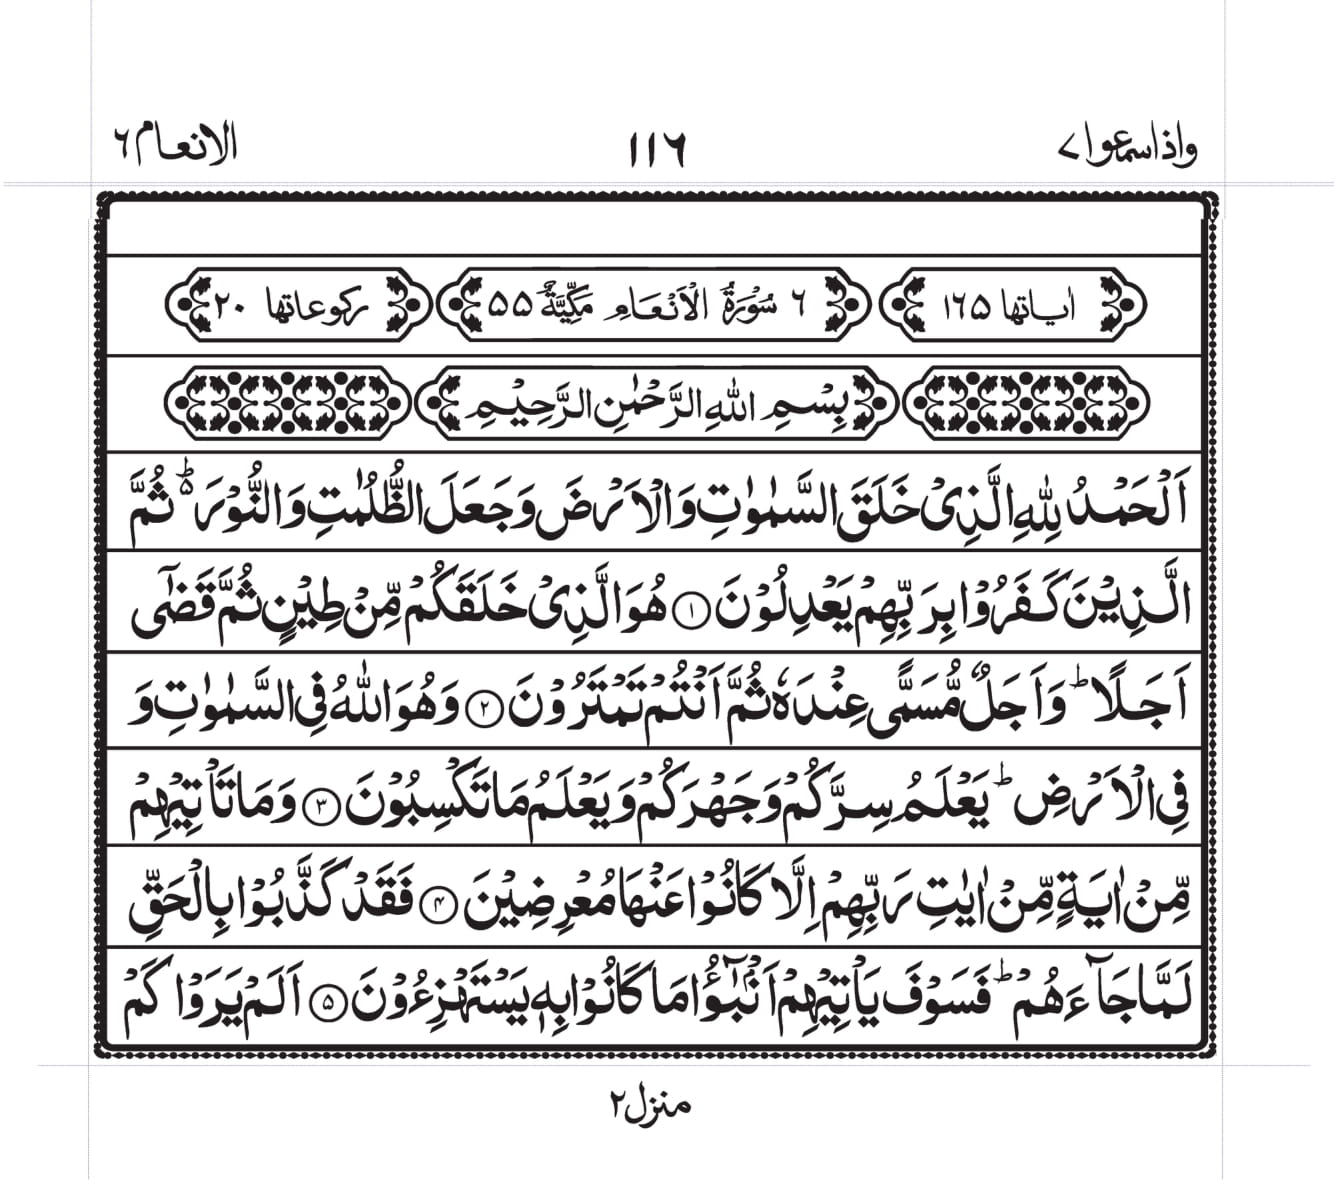 واذاسمعوا ۷ ۱۱۶ الانعام ۶
اٰیاتها ۱۶۵ ۶ سُوْرَةُ الْاَنْعَامِ مَكِّیَّةٌ ۵۵ ركوعاتها ۲۰
بِسْمِ اللّٰهِ الرَّحْمٰنِ الرَّحِیْمِ
اَلْحَمْدُ لِلّٰهِ الَّذِیْ خَلَقَ السَّمٰوٰتِ وَالْاَرْضَ وَجَعَلَ الظُّلُمٰتِ وَالنُّوْرَ ؕ۬ ثُمَّ
الَّذِیْنَ كَفَرُوْا بِرَبِّهِمْ یَعْدِلُوْنَ ۱ هُوَ الَّذِیْ خَلَقَكُمْ مِّنْ طِیْنٍ ثُمَّ قَضٰۤی
اَجَلًا ؕ وَاَجَلٌ مُّسَمًّی عِنْدَهٗ ثُمَّ اَنْتُمْ تَمْتَرُوْنَ ۲ وَهُوَ اللّٰهُ فِی السَّمٰوٰتِ وَ
فِی الْاَرْضِ ؕ یَعْلَمُ سِرَّكُمْ وَجَهْرَكُمْ وَیَعْلَمُ مَا تَكْسِبُوْنَ ۳ وَمَا تَاْتِیْهِمْ
مِّنْ اٰیَةٍ مِّنْ اٰیٰتِ رَبِّهِمْ اِلَّا كَانُوْا عَنْهَا مُعْرِضِیْنَ ۴ فَقَدْ كَذَّبُوْا بِالْحَقِّ
لَمَّا جَآءَهُمْ ؕ فَسَوْفَ یَاْتِیْهِمْ اَنْۢبٰٓؤُا مَا كَانُوْا بِهٖ یَسْتَهْزِءُوْنَ ۵ اَلَمْ یَرَوْا كَمْ
منزل ۲